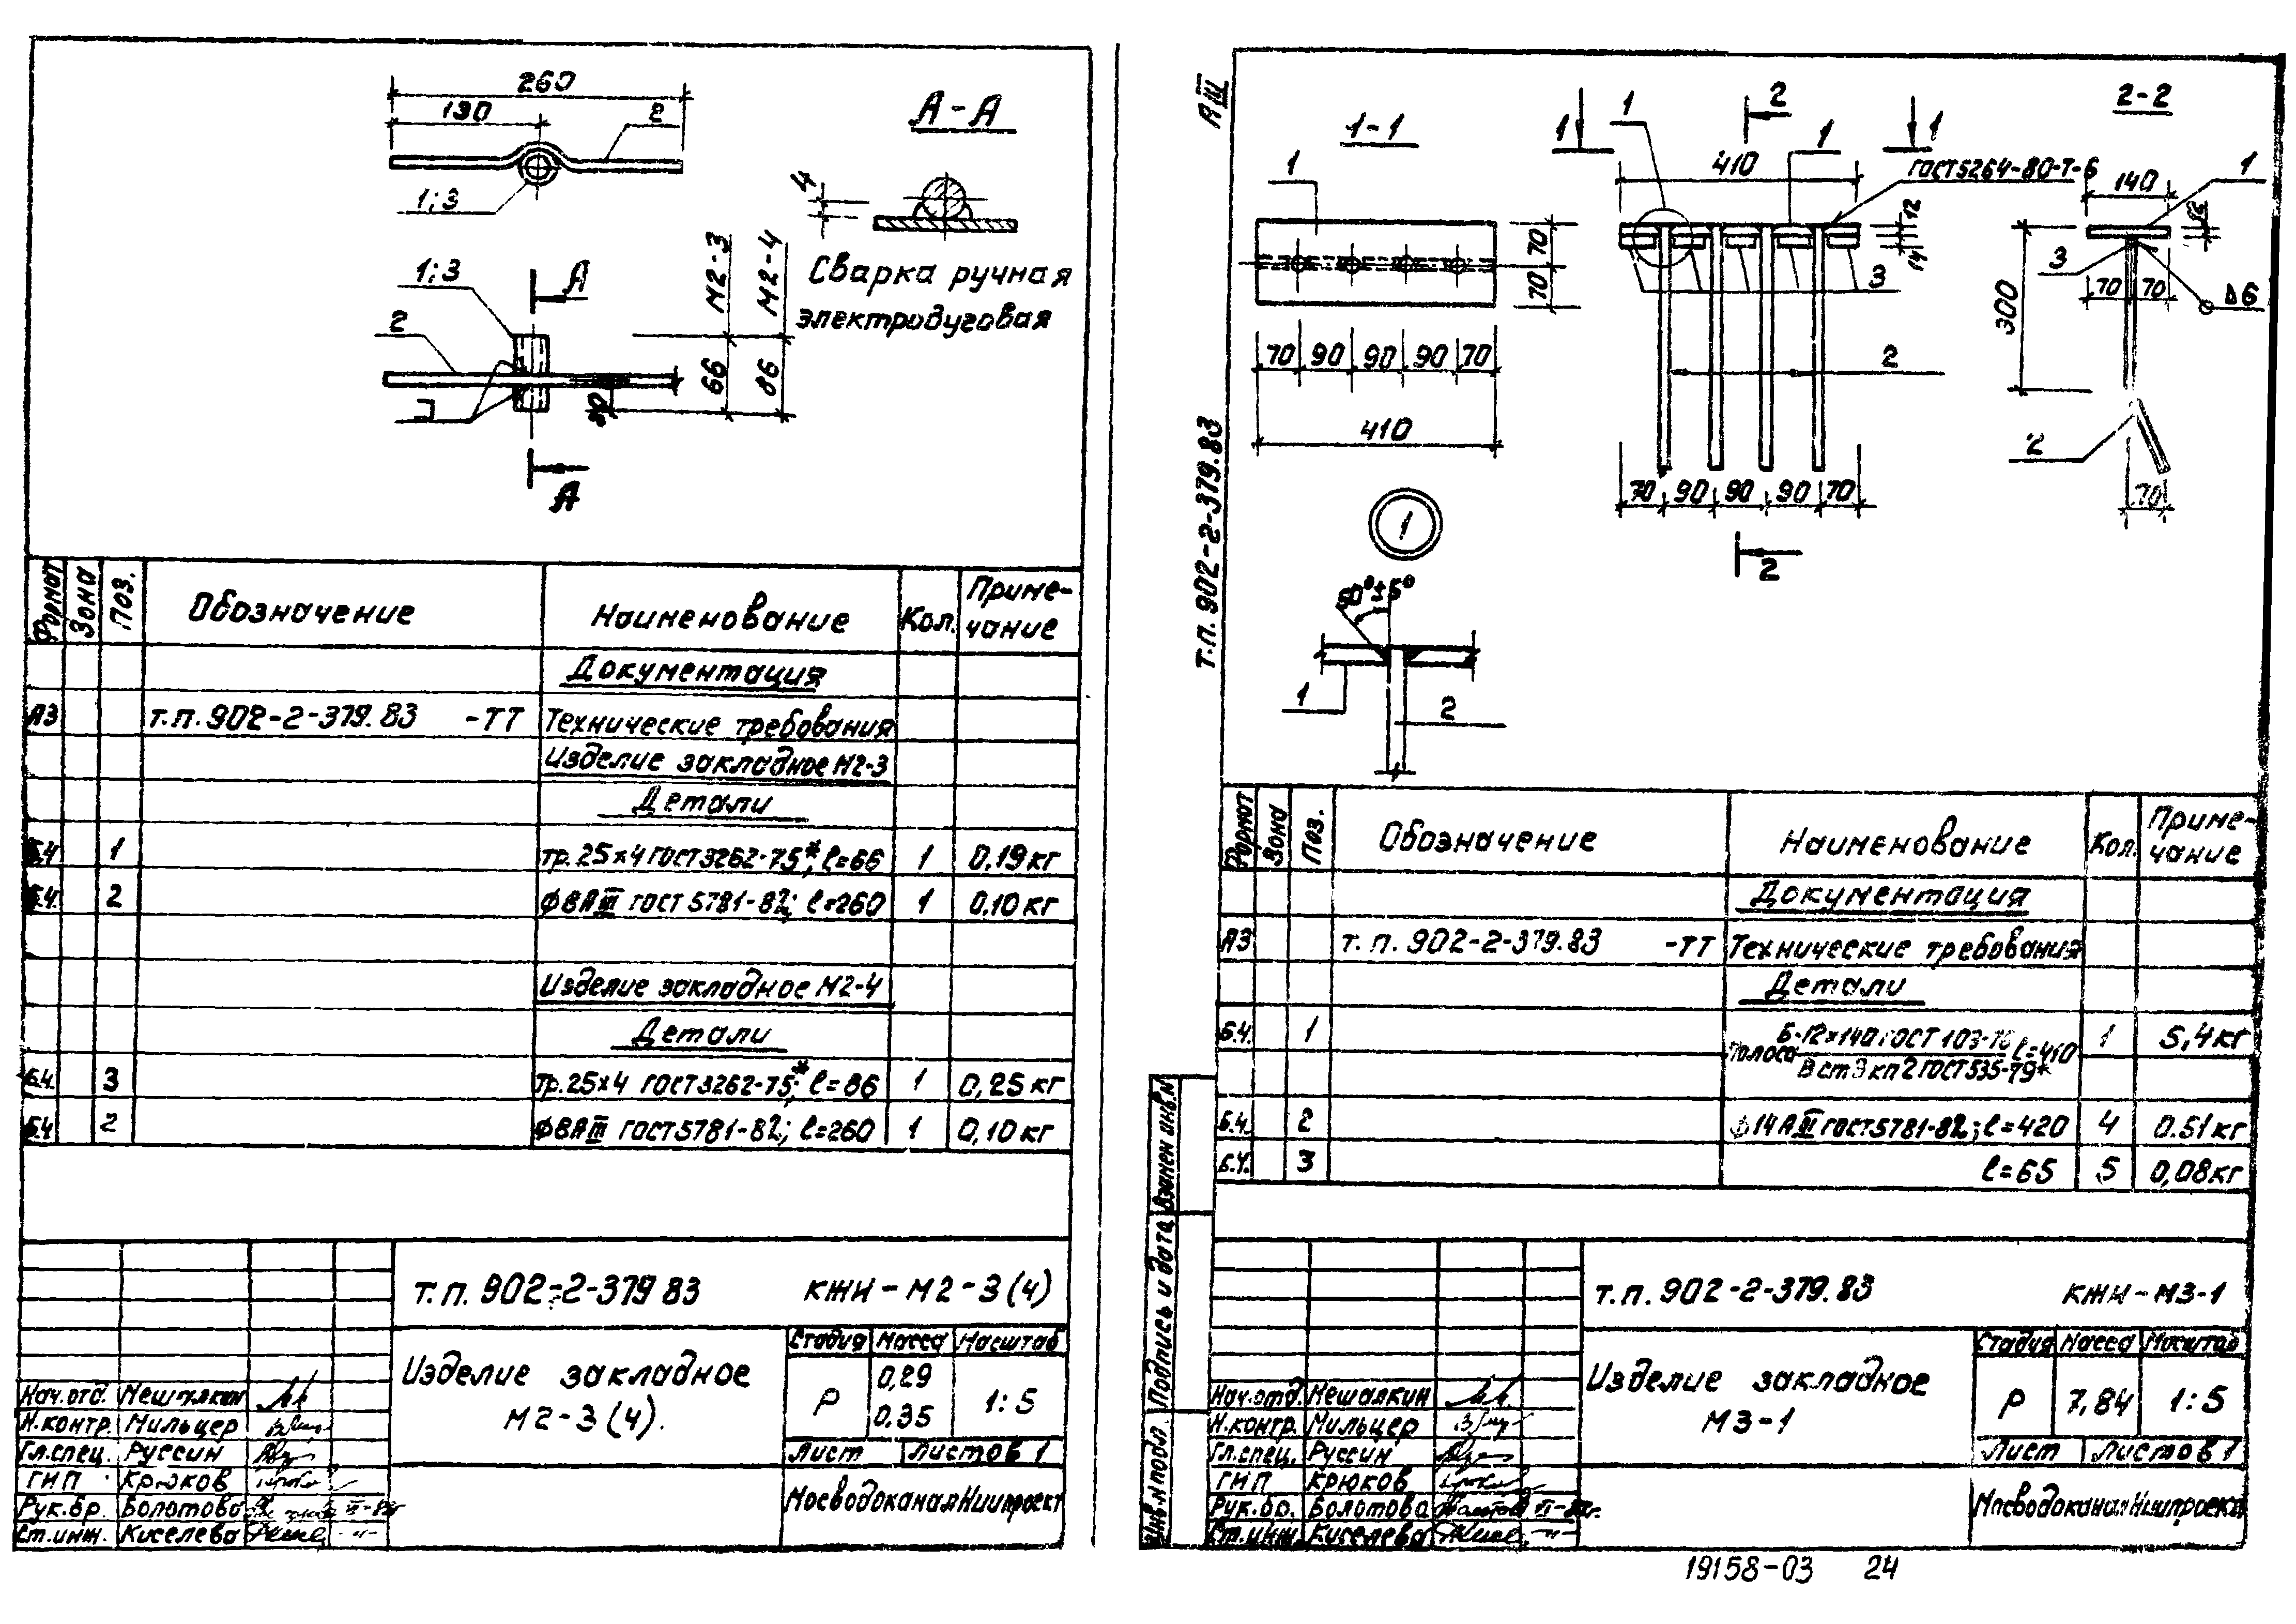 260
130
2
1;3
А-А
4
Сварка ручная
электродуговая
1;3
А
2
М2-3
М2-4
66
86
А
Формат Зона Поз. Обозначение Наименование Кол. Приме-
чание
Документация
А3 т.п.902-2-379.83 -ТТ Технические требования
Изделие закладное М2-3
Детали
Б.4 1 тр.25х4 ГОСТ3262-75*; ℓ=66 1 0,19кг
Б.4. 2 ф8АIII ГОСТ5781-82; ℓ=260 1 0,10кг
Изделие закладное М2-4
Детали
Б.4. 3 тр.25х4 ГОСТ3262-75*; ℓ=86 1 0,25кг
Б.4 2 ф8АIII ГОСТ5781-82; ℓ=260 1 0,10кг
т.п.902-2-379 83 КЖИ-М2-3(4)
Изделие закладное
М2-3(4).
Стадия Масса Масштаб
Р 0,29
0,35 1:5
Лист Листов 1
МосводоканалНиипроект
Нач.отд. Мешалкин
Н.контр. Мильцер
Гл.спец. Руссин
ГИП Крюков
Рук.бр. Болотова
Ст.инж. Киселева
АIII
т.п.902-2-379.83
1-1
1
70
70
70 90 90 90 70
410
1
2
1
1
1
410
ГОСТ5264-80-Т-6
12
14
3
2
70 90 90 90 70
2
2-2
140
1
300
3
70 70
Δ6
2
70
1
50°±5°
1
2
Формат Зона Поз. Обозначение Наименование Кол. Приме-
чание
Документация
А3 т.п.902-2-379.83 -ТТ Технические требования
Детали
Б.4. 1 Полоса Б-12х140 ГОСТ 103-76 ℓ=410 1 5,4кг
ВСт3кп2 ГОСТ535-79*
Б.4. 2 ф14АIII ГОСТ5781-82; ℓ=420 4 0.51кг
Б.4. 3 ℓ=65 5 0,08кг
Взамен инв.№
Подпись и дата
Инв.№подл
т.п.902-2-379.83 КЖИ-М3-1
Изделие закладное
М3-1
Стадия Масса Масштаб
Р 7,84 1:5
Лист Листов 1
МосводоканалНиипроект
Нач.отд. Мешалкин
Н.контр. Мильцер
Гл.спец. Руссин
ГИП Крюков
Рук.бр. Болотова
Ст.инж. Киселева
19158-03 24